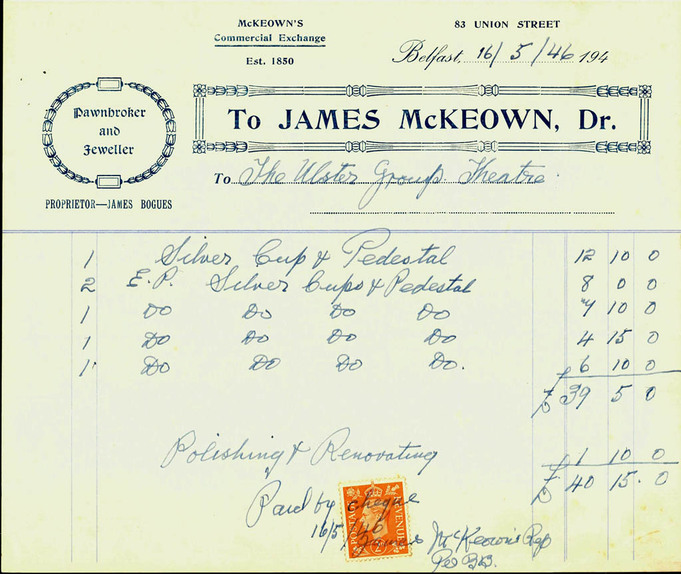 McKEOWN'S
Commercial Exchange
Est. 1850
83 UNION STREET
Belfast, 16/5/46 194
Pawnbroker
and
Jeweller
PROPRIETOR—JAMES BOGUES
To JAMES McKEOWN, Dr.
To The Ulster Group Theatre
1 Silver Cup & Pedestal 12 10 0
2 E.P. Silver Cups & Pedestal 8 0 0
1 Do Do Do Do 7 10 0
1 Do Do Do Do 4 15 0
1 Do Do Do Do. 6 10 0
£ 39 5 0
Polishing & Renovating 1 10 0
£ 40 15. 0
Paid by cheque
16/5/46
James McKeown's Rep
Per
POSTAGE REVENUE